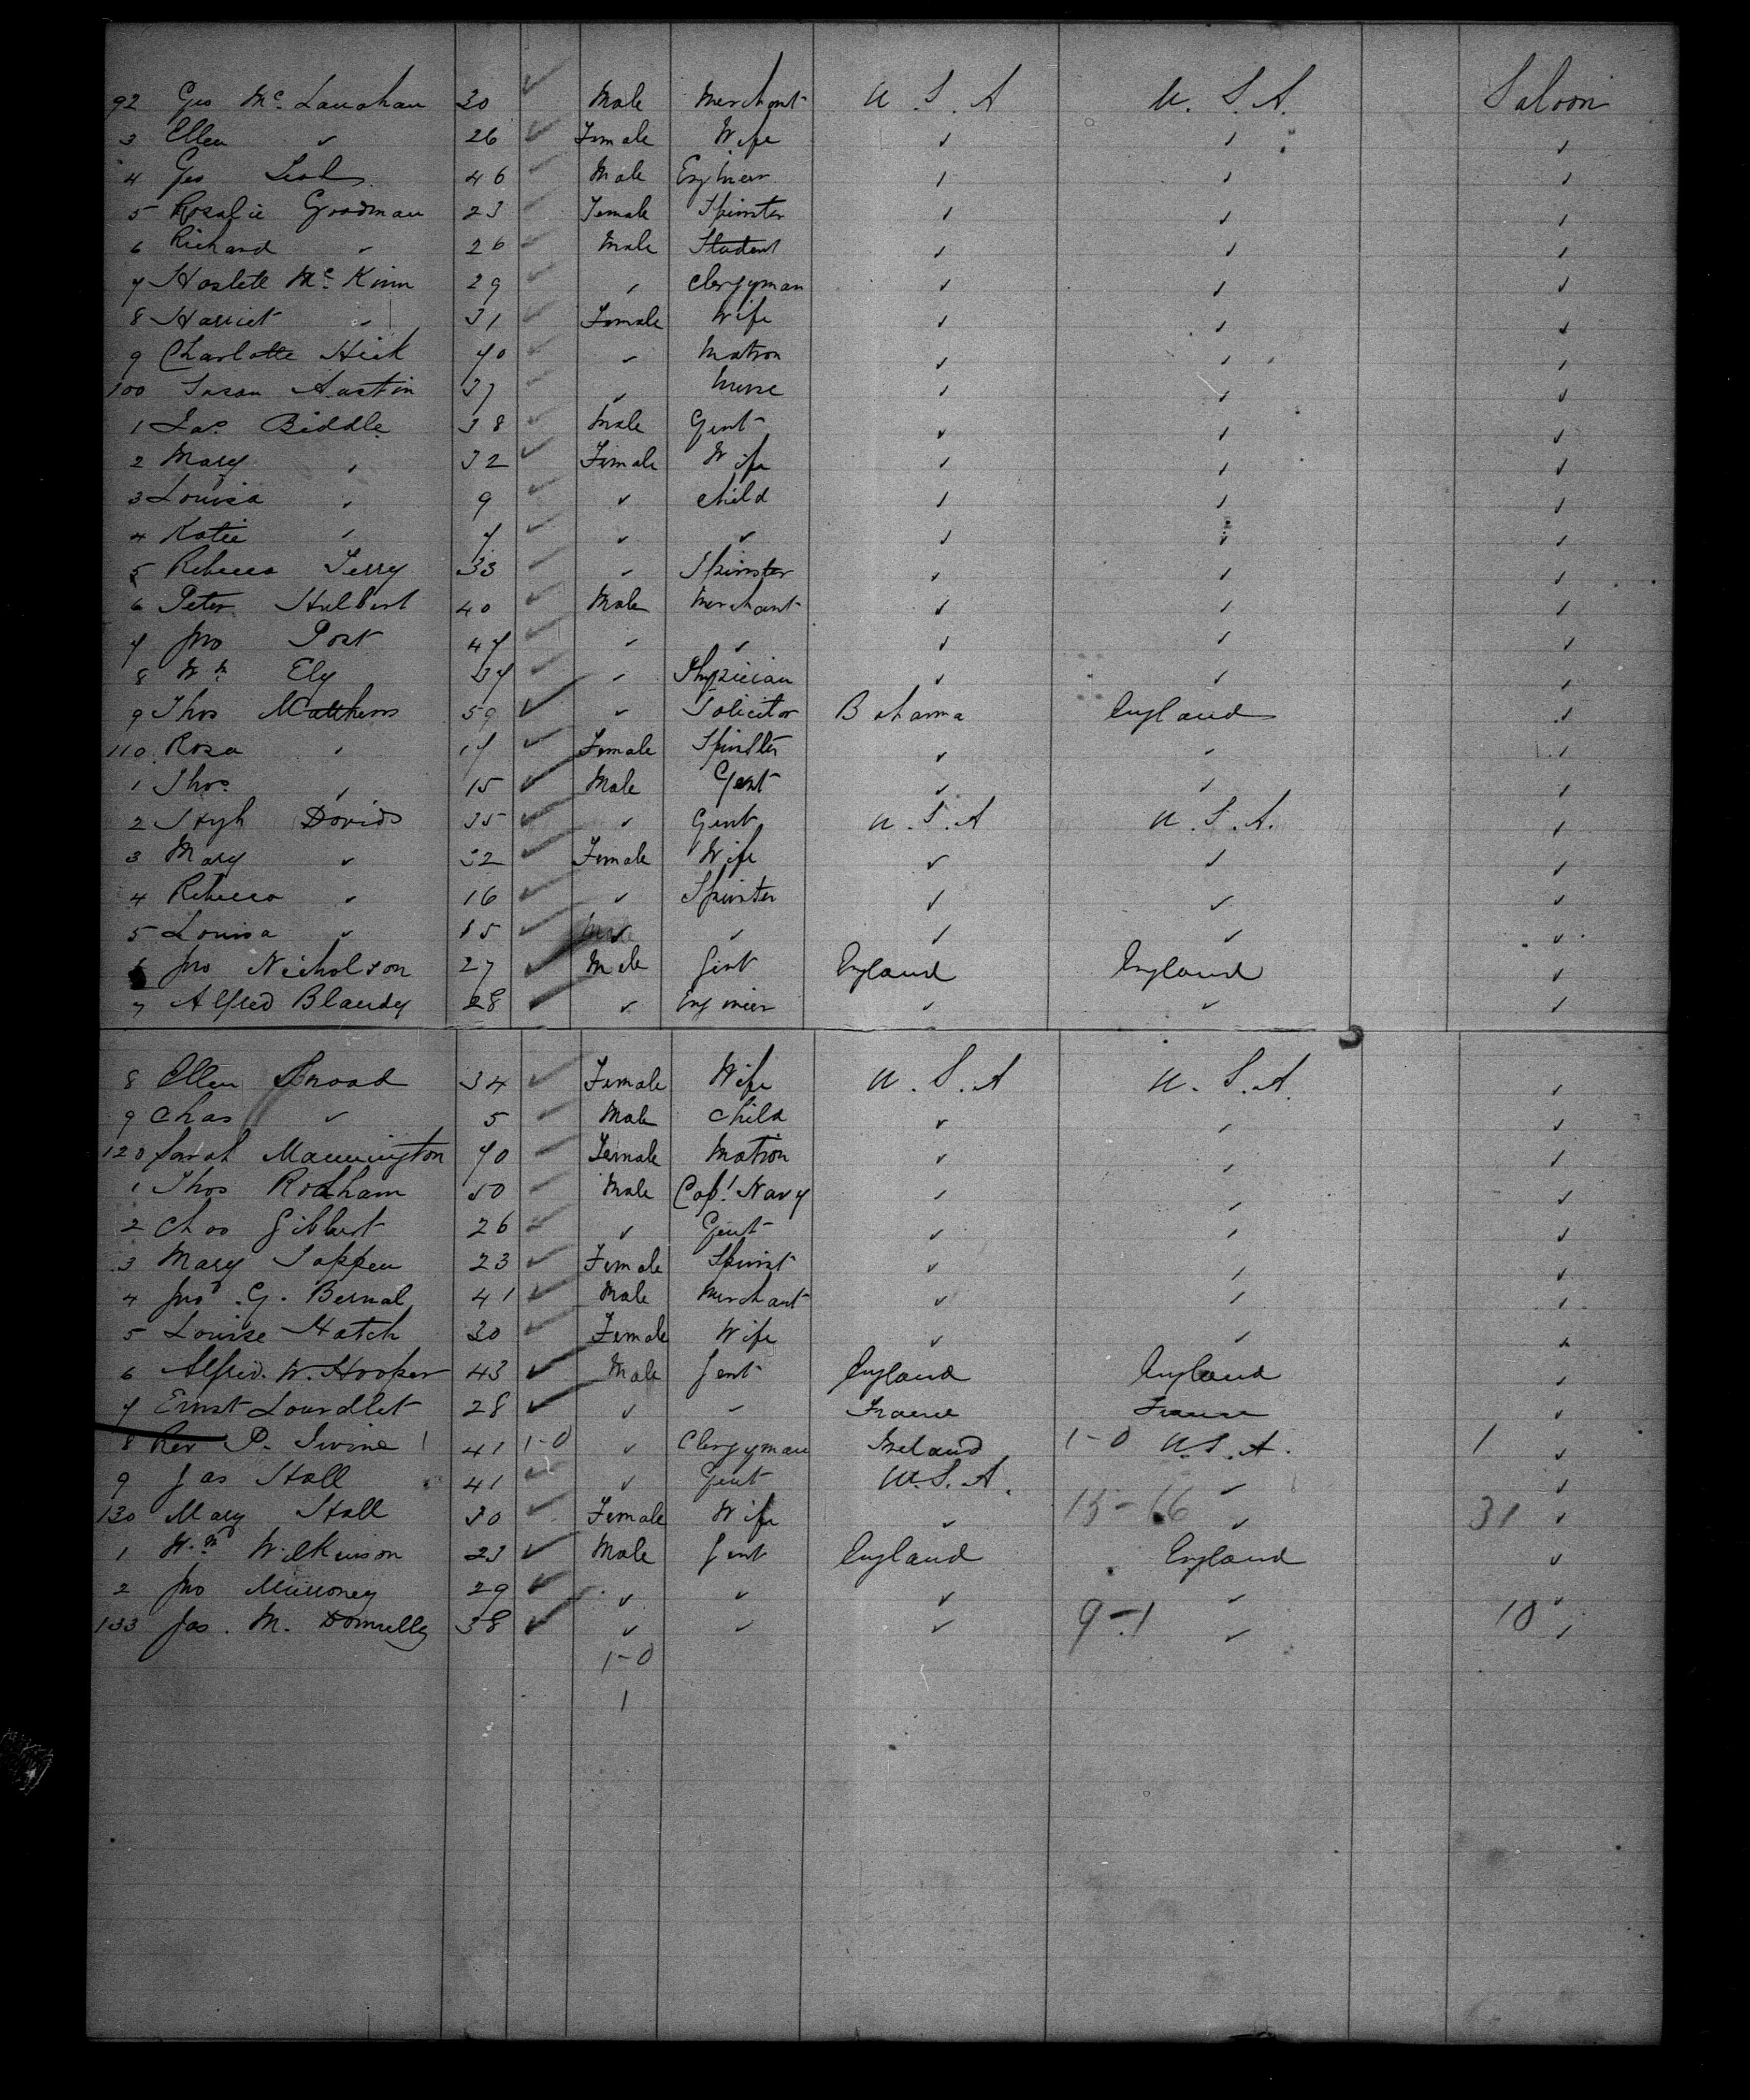 92 Geo Mc. Lanahan 30 ✓ Male Merchant U. S. A U. S. A. Saloon
3 Ellen ✓ 26 ✓ Female Wife ✓ ✓ ✓
4 Geo 46 ✓ Male Engineer ✓ ✓ ✓
5 Rosalie Goodman 23 ✓ Female Spinster ✓ ✓ ✓
6 Richard ✓ 26 ✓ Male Student ✓ ✓ ✓
7 Haslett Mc. Kinn 29 ✓ ✓ Clergyman ✓ ✓ ✓
8 Harriet ✓ 31 ✓ Female Wife ✓ ✓ ✓
9 Charlotte Hick 70 ✓ ✓ Matron ✓ ✓ ✓
100 Susan Austin 37 ✓ ✓ Nurse ✓ ✓ ✓
1 Jas. Biddle 38 ✓ Male Gent ✓ ✓ ✓
2 Mary ✓ 32 ✓ Female Wife ✓ ✓ ✓
3 Louisa ✓ 9 ✓ ✓ Child ✓ ✓ ✓
4 Katie ✓ 7 ✓ ✓ ✓ ✓ ✓ ✓
5 Rebecca Terry 33 ✓ ✓ Spinster ✓ ✓ ✓
6 Peter Hulbert 40 ✓ Male Merchant ✓ ✓ ✓
7 Jno Post 47 ✓ ✓ ✓ ✓ ✓ ✓
8 Wm Ely 37 ✓ ✓ Physician ✓ ✓ ✓
9 Thos Matthews 59 ✓ ✓ Solicitor Bahama England ✓
110 Rosa ✓ 17 ✓ Female Spinster ✓ ✓ ✓
1 Thos. ✓ 15 ✓ Male Gent ✓ ✓ ✓
2 Hugh Davids 35 ✓ ✓ Gent U. S. A U. S. A. ✓
3 Mary ✓ 32 ✓ Female Wife ✓ ✓ ✓
4 Rebecca ✓ 16 ✓ ✓ Spinster ✓ ✓ ✓
5 Louisa ✓ 15 ✓ ✓ ✓ ✓ ✓ ✓
6 Jno Nicholson 27 ✓ Male Gent England England ✓
7 Alfred Blandy 28 ✓ ✓ Engineer ✓ ✓ ✓
8 Ellen 34 ✓ Female Wife U. S. A U. S. A. ✓
9 Chas ✓ 5 ✓ Male Child ✓ ✓ ✓
120 Sarah Mannington 70 ✓ Female Matron ✓ ✓ ✓
1 Thos Rodham 50 ✓ Male Capt. Navy ✓ ✓ ✓
2 Chas Gibbert 26 ✓ ✓ Gent ✓ ✓ ✓
3 Mary Tappen 23 ✓ Female Spinst ✓ ✓ ✓
4 Jno G. Bernal 41 ✓ Male Merchant ✓ ✓ ✓
5 Louise Hatch 30 ✓ Female Wife ✓ ✓ ✓
6 Alfred. W. Hooper 43 ✓ Male Gent England England ✓
7 Ernst Lourdlet 28 ✓ ✓ ✓ France France ✓
8 Rev P. Irvine 41 1-0 ✓ Clergyman Ireland 1-0 U.S.A. 1 ✓
9 Jas Hall 41 ✓ ✓ Gent U.S.A. ✓ ✓
130 Mary Hall 30 ✓ Female Wife ✓ 15-16 ✓ 31 ✓
1 Wm Wilkinson 23 ✓ Male Gent England England ✓
2 Jno Mulroney 29 ✓ ✓ ✓ ✓ ✓ ✓
133 Jas. M. Donnelly 38 ✓ ✓ ✓ ✓ 9-1 ✓ 10 ✓
1-0
1